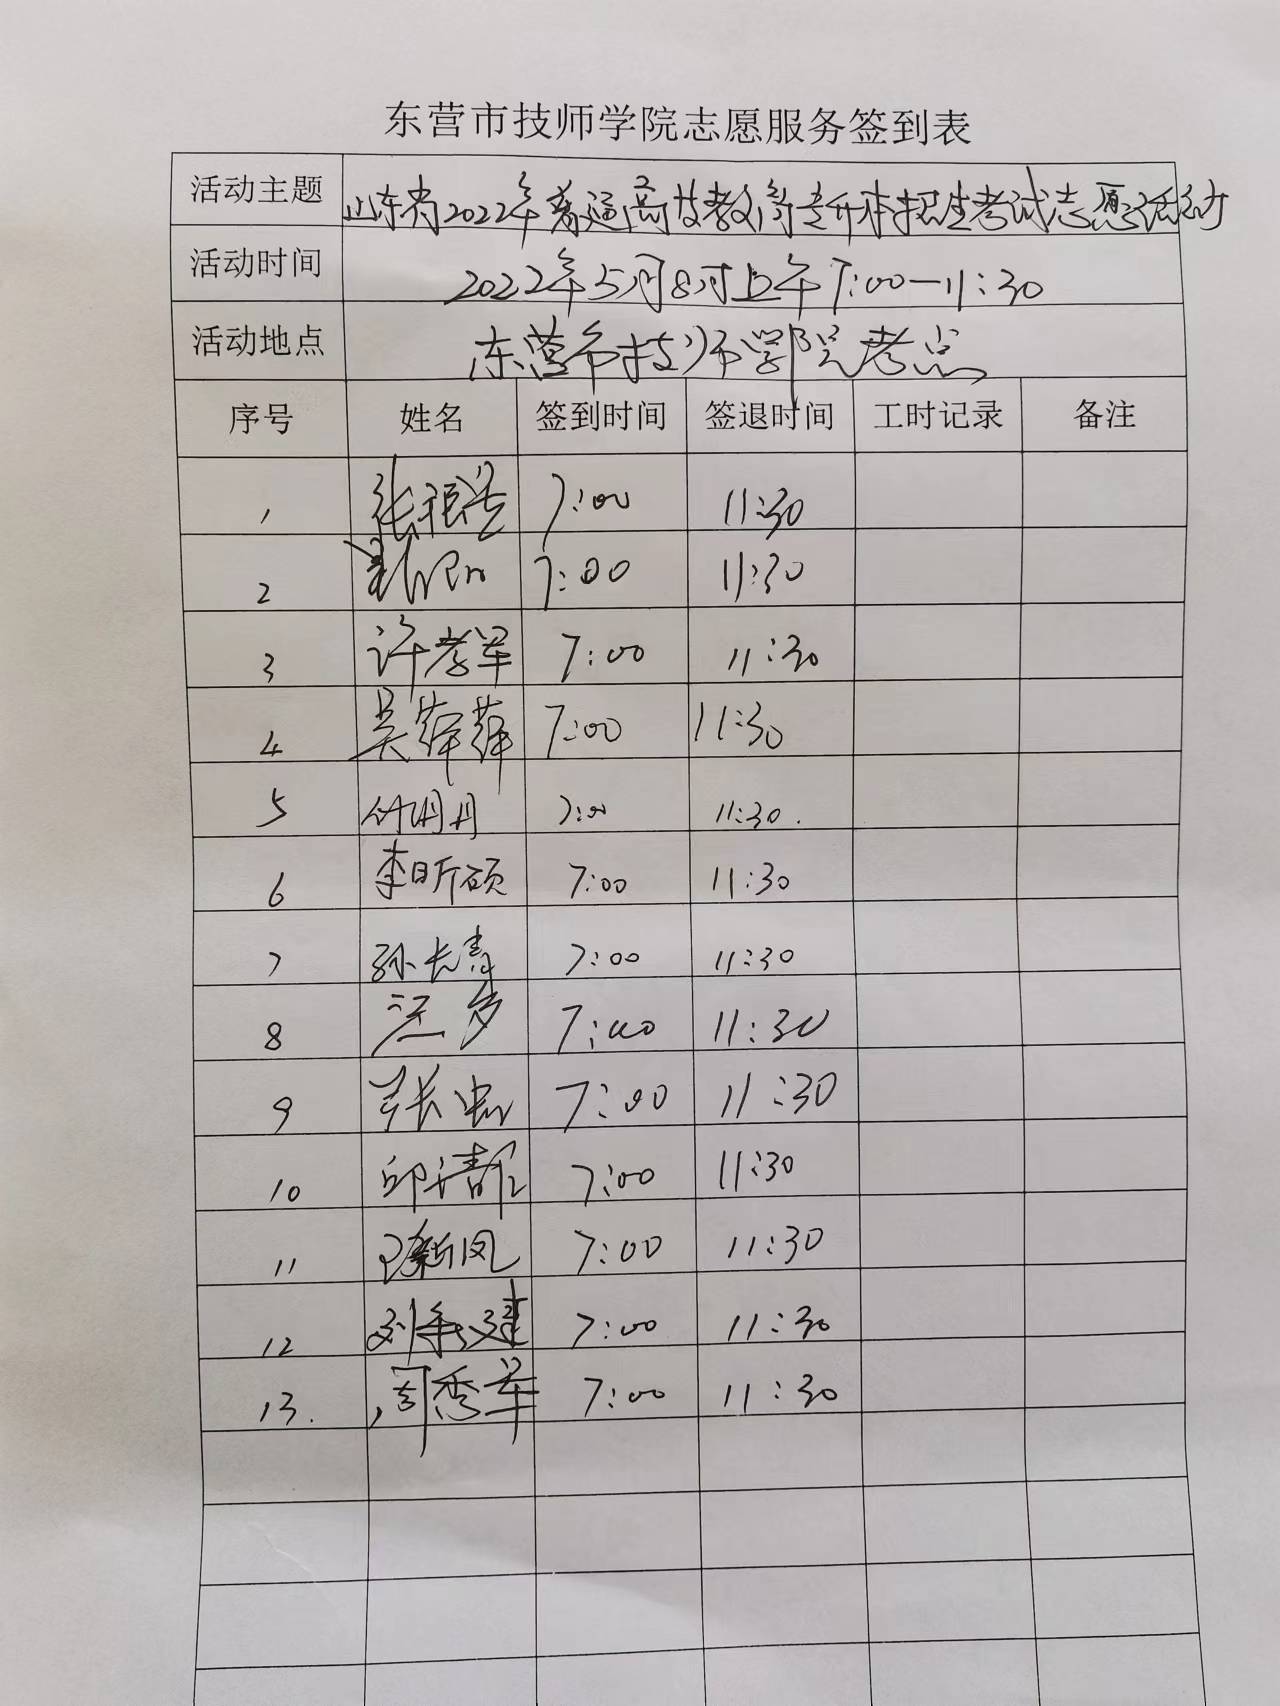 东营市技师学院志愿服务签到表
活动主题 山东省2022年普通高校教育专升本招生考试志愿活动
活动时间 2022年5月8时上午7:00—11:30
活动地点 东营市技师学院考点
序号 姓名 签到时间 签退时间 工时记录 备注
1 7:00 11:30
2 7:00 11:30
3 许孝军 7:00 11:30
4 吴萍萍 7:00 11:30
5 付明月 7:00 11:30.
6 李昕硕 7:00 11:30
7 孙长青 7:00 11:30
8 7:00 11:30
9 7:00 11:30
10 7:00 11:30
11 7:00 11:30
12 7:00 11:30
13. 周秀军 7:00 11:30